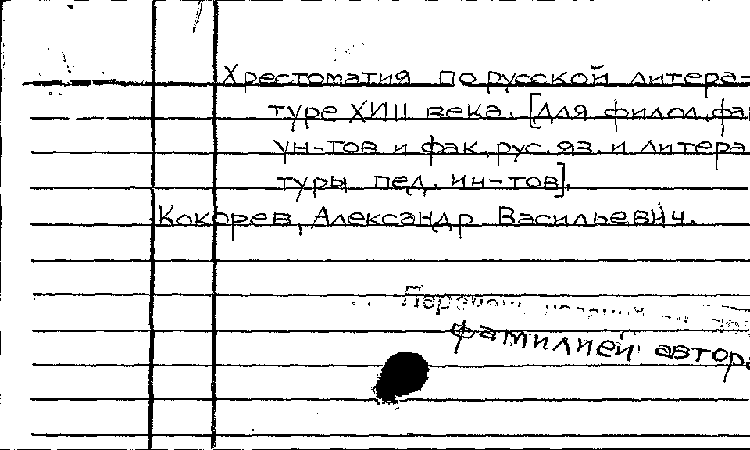 Хрестоматия по русской литера-
туре ХИІІ века. [Для филол. фа
ун-тов и фак. рус. яз. и литера
туры пед. ин-тов].
Кокорев, Александр Васильевич.
фамилией автора